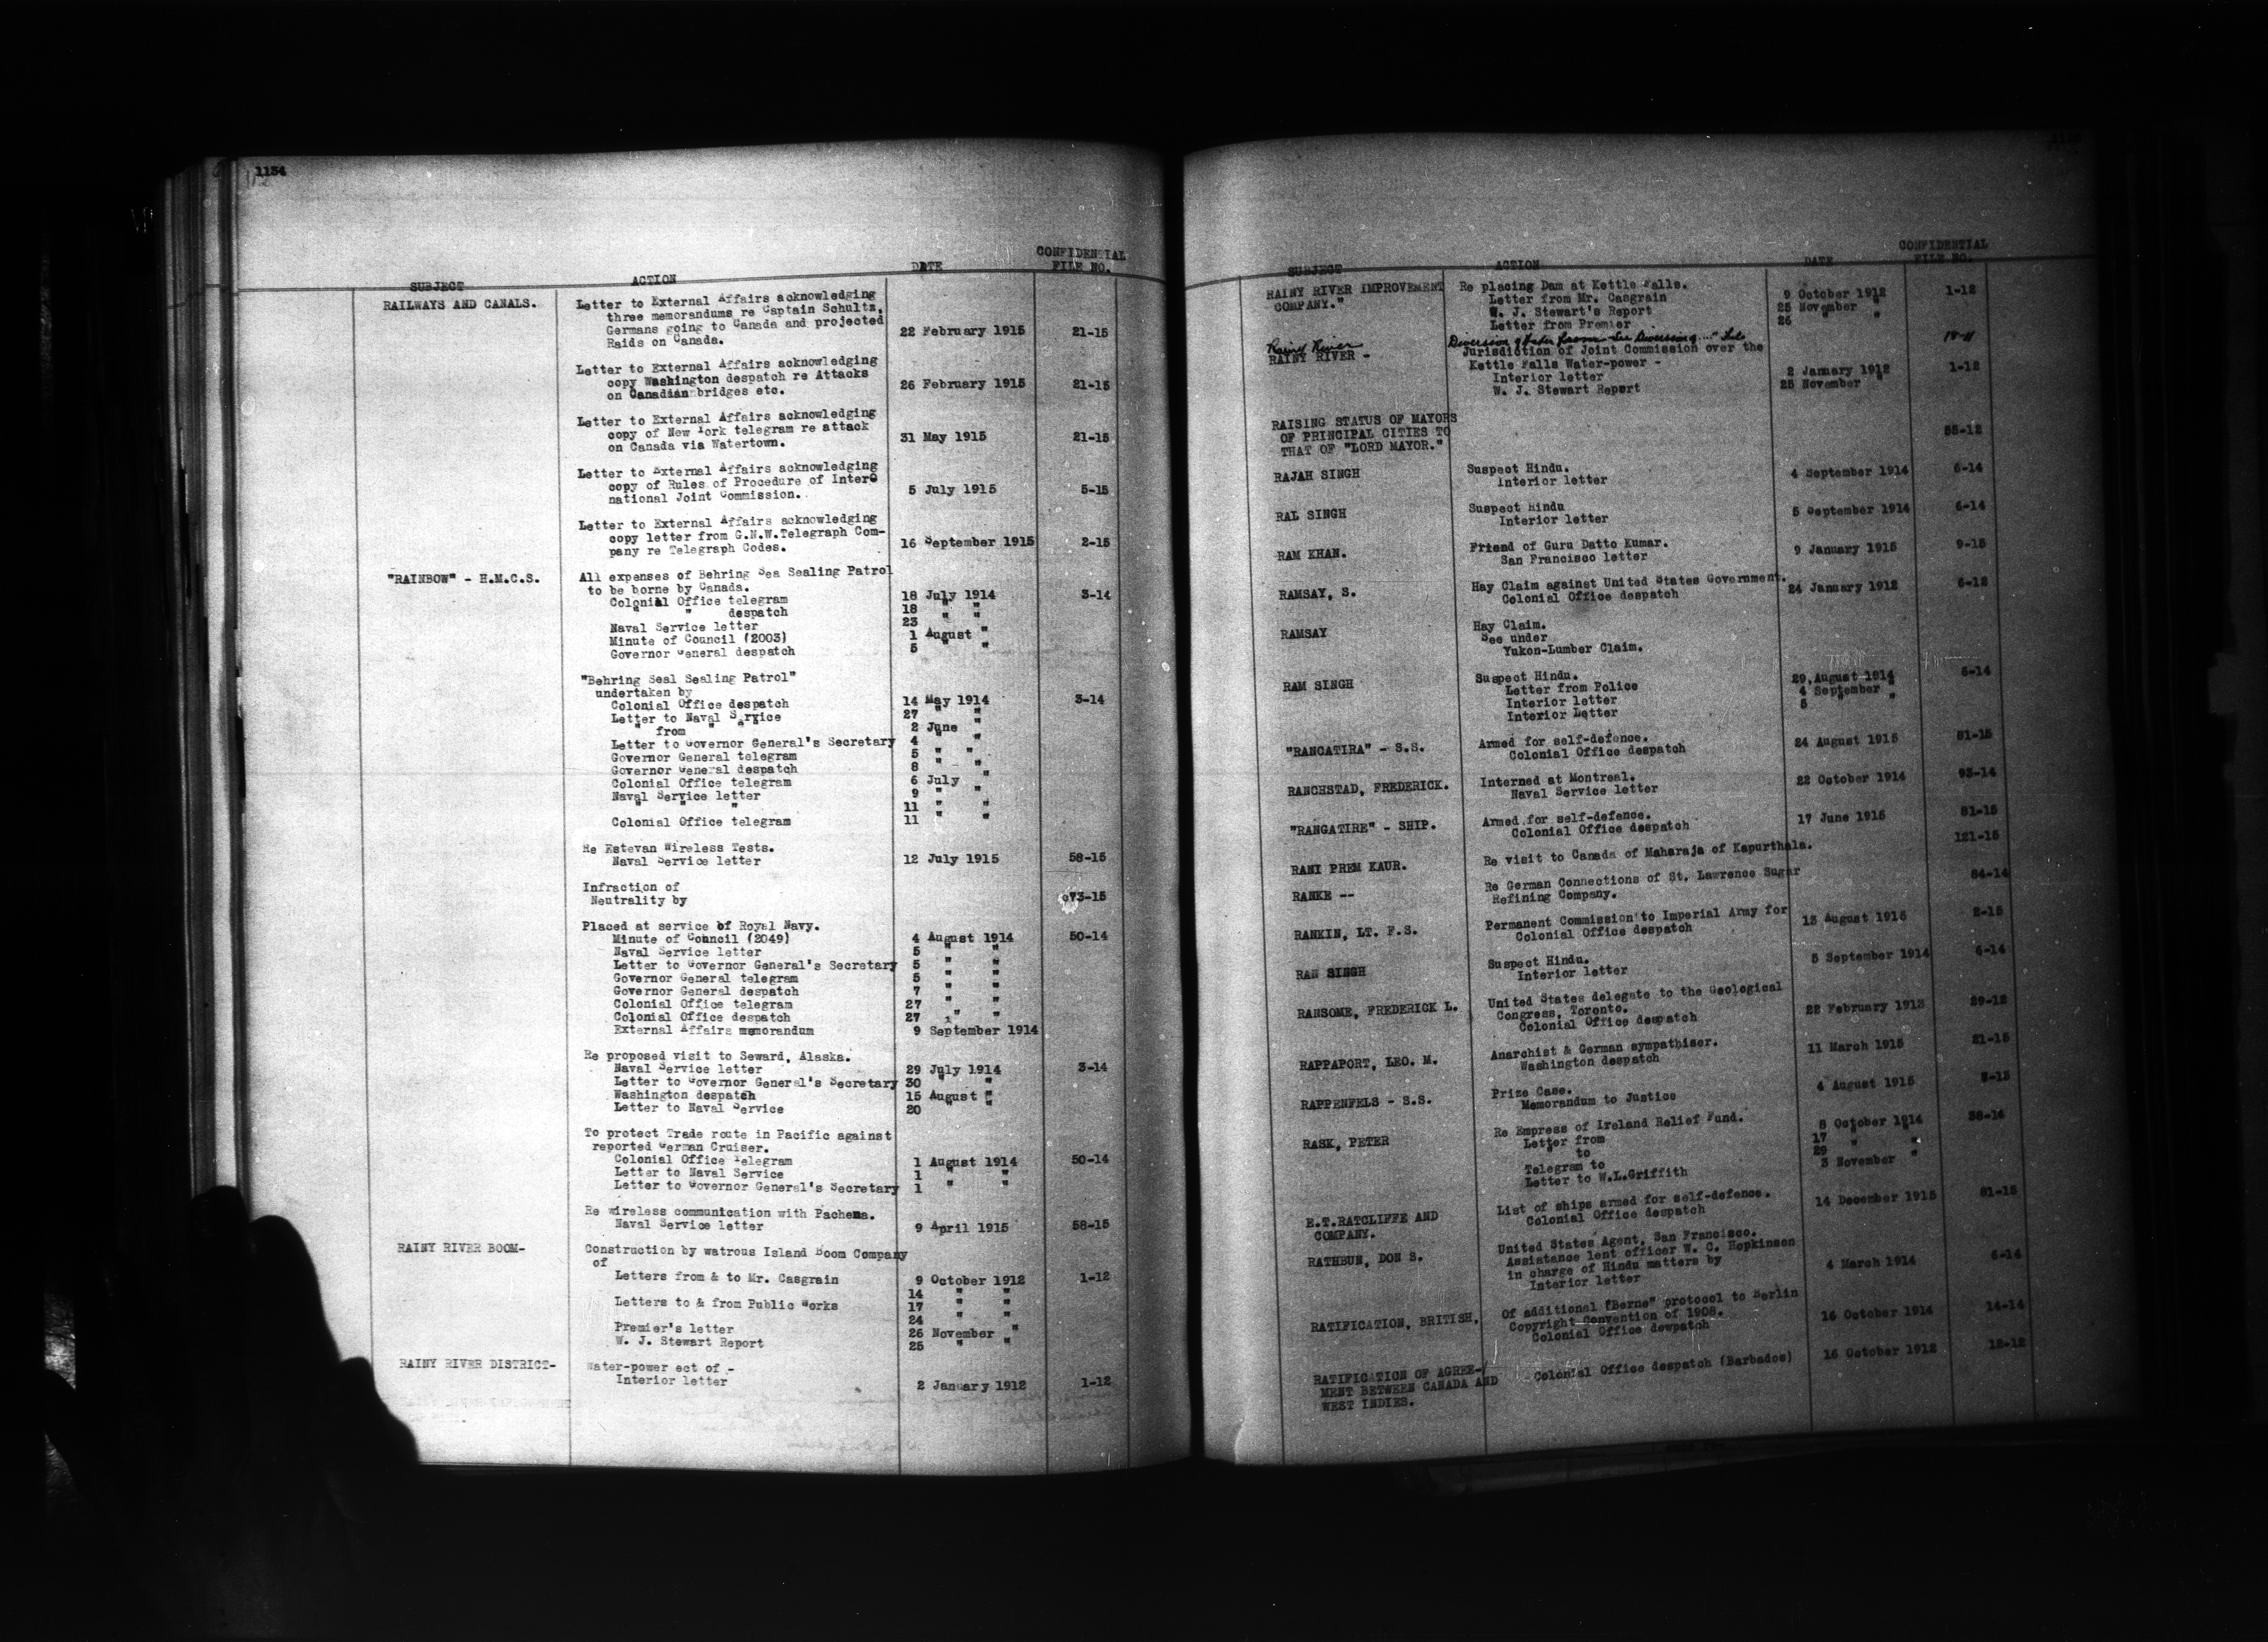 1134
SUBJECT ACTION DATE CONFIDENTIAL FILE NO.
RAILWAYS AND CANALS. Letter to External Affairs acknowledging
three memorandums re Captain Schultz,
Germans going to Canada and projected
Raids on Canada. 22 February 1915 21-15
Letter to External Affairs acknowledging
copy Washington despatch re Attacks
on Canadian bridges etc. 26 February 1915 21-15
Letter to External Affairs acknowledging
copy of New York telegram re attack
on Canada via Watertown. 31 May 1915 21-15
Letter to External Affairs acknowledging
copy of Rules of Procedure of Inter
national Joint Commission. 5 July 1915 5-15
Letter to External Affairs acknowledging
copy letter from G.N.W.Telegraph Com-
pany re Telegraph Codes. 16 September 1915 2-15
"RAINBOW" - H.M.C.S. All expenses of Behring Sea Sealing Patrol
to be borne by Canada.
Colonial Office telegram 18 July 1914 3-14
" " despatch 18 " "
Naval Service letter 23 " "
Minute of Council (2003) 1 August "
Governor General despatch 5 " "
"Behring Seal Sealing Patrol"
undertaken by
Colonial Office despatch 14 May 1914 3-14
Letter to Naval Service 27 " "
" from " " 2 June "
Letter to Governor General's Secretary 4 " "
Governor General telegram 5 " "
Governor General despatch 8 " "
Colonial Office telegram 6 July "
Naval Service letter 9 " "
" " " 11 " "
Colonial Office telegram 11 " "
Re Estevan Wireless Tests.
Naval Service letter 12 July 1915 58-15
Infraction of
Neutrality by 73-15
Placed at service of Royal Navy.
Minute of Council (2049) 4 August 1914 50-14
Naval Service letter 5 " "
Letter to Governor General's Secretary 5 " "
Governor General telegram 5 " "
Governor General despatch 7 " "
Colonial Office telegram 27 " "
Colonial Office despatch 27 " "
External Affairs memorandum 9 September 1914
Re proposed visit to Seward, Alaska.
Naval Service letter 29 July 1914 3-14
Letter to Governor General's Secretary 30 " "
Washington despatch 15 August "
Letter to Naval Service 20 " "
To protect Trade route in Pacific against
reported German Cruiser.
Colonial Office Telegram 1 August 1914 50-14
Letter to Naval Service 1 " "
Letter to Governor General's Secretary 1 " "
Re wireless communication with Pachena.
Naval Service letter 9 April 1915 58-15
RAINY RIVER BOOM- Construction by watrous Island Boom Company
of
Letters from & to Mr. Casgrain 9 October 1912 1-12
14 " "
Letters to & from Public Works 17 " "
24 " "
Premier's letter 26 November "
W. J. Stewart Report 25 " "
RAINY RIVER DISTRICT- Water-power ect of -
Interior letter 2 January 1912 1-12
SUBJECT ACTION DATE CONFIDENTIAL FILE NO.
RAINY RIVER IMPROVEMENT Re placing Dam at Kettle Falls.
COMPANY." Letter from Mr. Casgrain 9 October 1912 1-12
W. J. Stewart's Report 25 November "
Letter from Premier 26 " "
Rainy River Diversion of Water from - See Diversion 18-11
RAINY RIVER - Jurisdiction of Joint Commission over the
Kettle Falls Water-power -
Interior letter 2 January 1912 1-12
W. J. Stewart Report 25 November "
RAISING STATUS OF MAYORS
OF PRINCIPAL CITIES TO
THAT OF "LORD MAYOR." 55-12
RAJAH SINGH Suspect Hindu.
Interior letter 4 September 1914 6-14
RAL SINGH Suspect Hindu
Interior letter 5 September 1914 6-14
RAM KHAN. Friend of Guru Datto Kumar.
San Francisco letter 9 January 1915 9-15
RAMSAY, S. Hay Claim against United States Government.
Colonial Office despatch 24 January 1912 6-12
RAMSAY Hay Claim.
See under
Yukon-Lumber Claim.
RAM SINGH Suspect Hindu.
Letter from Police 29, August 1914 6-14
Interior letter 4 September "
Interior Letter 5 "
"RANCATIRA" - S.S. Armed for self-defence.
Colonial Office despatch 24 August 1915 81-15
RANCHSTAD, FREDERICK. Interned at Montreal.
Naval Service letter 22 October 1914 93-14
"RANGATIRE" - SHIP. Armed for self-defence.
Colonial Office despatch 17 June 1915 81-15
RANI PREM KAUR. Re visit to Canada of Maharaja of Kapurthala. 121-15
RANKE -- Re German Connections of St. Lawrence Sugar
Refining Company. 84-14
RANKIN, LT. F.S. Permanent Commission to Imperial Army for
Colonial Office despatch 13 August 1915 2-15
RAN SINGH Suspect Hindu.
Interior letter 5 September 1914 6-14
RANSOME, FREDERICK L. United States delegate to the Geological
Congress, Toronto.
Colonial Office despatch 22 February 1913 29-12
RAPPAPORT, LEO. M. Anarchist & German sympathiser.
Washington despatch 11 March 1915 21-15
RAPPENFELS - S.S. Prize Case.
Memorandum to Justice 4 August 1915 5-15
RASK, PETER Re Empress of Ireland Relief Fund.
Letter from 8 October 1914 38-14
" to 17 " "
Telegram to 29 " "
Letter to W.L.Griffith 3 November "
E.T.RATCLIFFE AND List of ships armed for self-defence.
COMPANY. Colonial Office despatch 14 December 1915 81-15
RATHBUN, DON S. United States Agent, San Francisco.
Assistance lent officer W. C. Hopkinson
in charge of Hindu matters by
Interior letter 4 March 1914 6-14
RATIFICATION, BRITISH, Of additional "Berne" protocol to Berlin
Copyright Convention of 1908.
Colonial Office dewpatch 16 October 1914 14-14
RATIFICATION OF AGREE- Colonial Office despatch (Barbados) 16 October 1912 12-12
MENT BETWEEN CANADA AND
WEST INDIES.